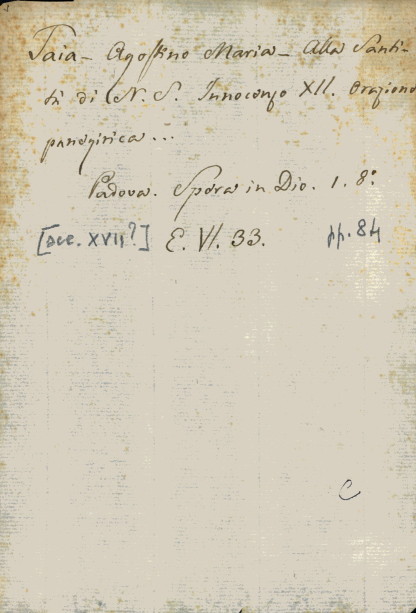 Taia - Agostino Maria - Alla Santi-
tà di N. S. Innocenzo XII. Orazione
panegirica ...
Padova. Spera in Dio. 1. 8°
[sec. XVII?] E. VI. 33. pp. 84
C